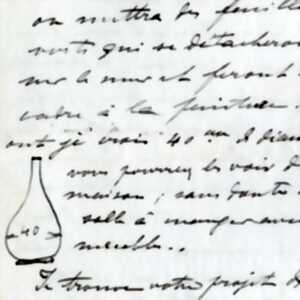 on mettra des feuill
verts qui se détacheron
sur le mur et feront
cadre à la peinture.
ont je vais 40 d diam
vous pourrez les voir d
maison ; sans doute
salle à manger avec
meubles..
40
Je trouve votre projet d